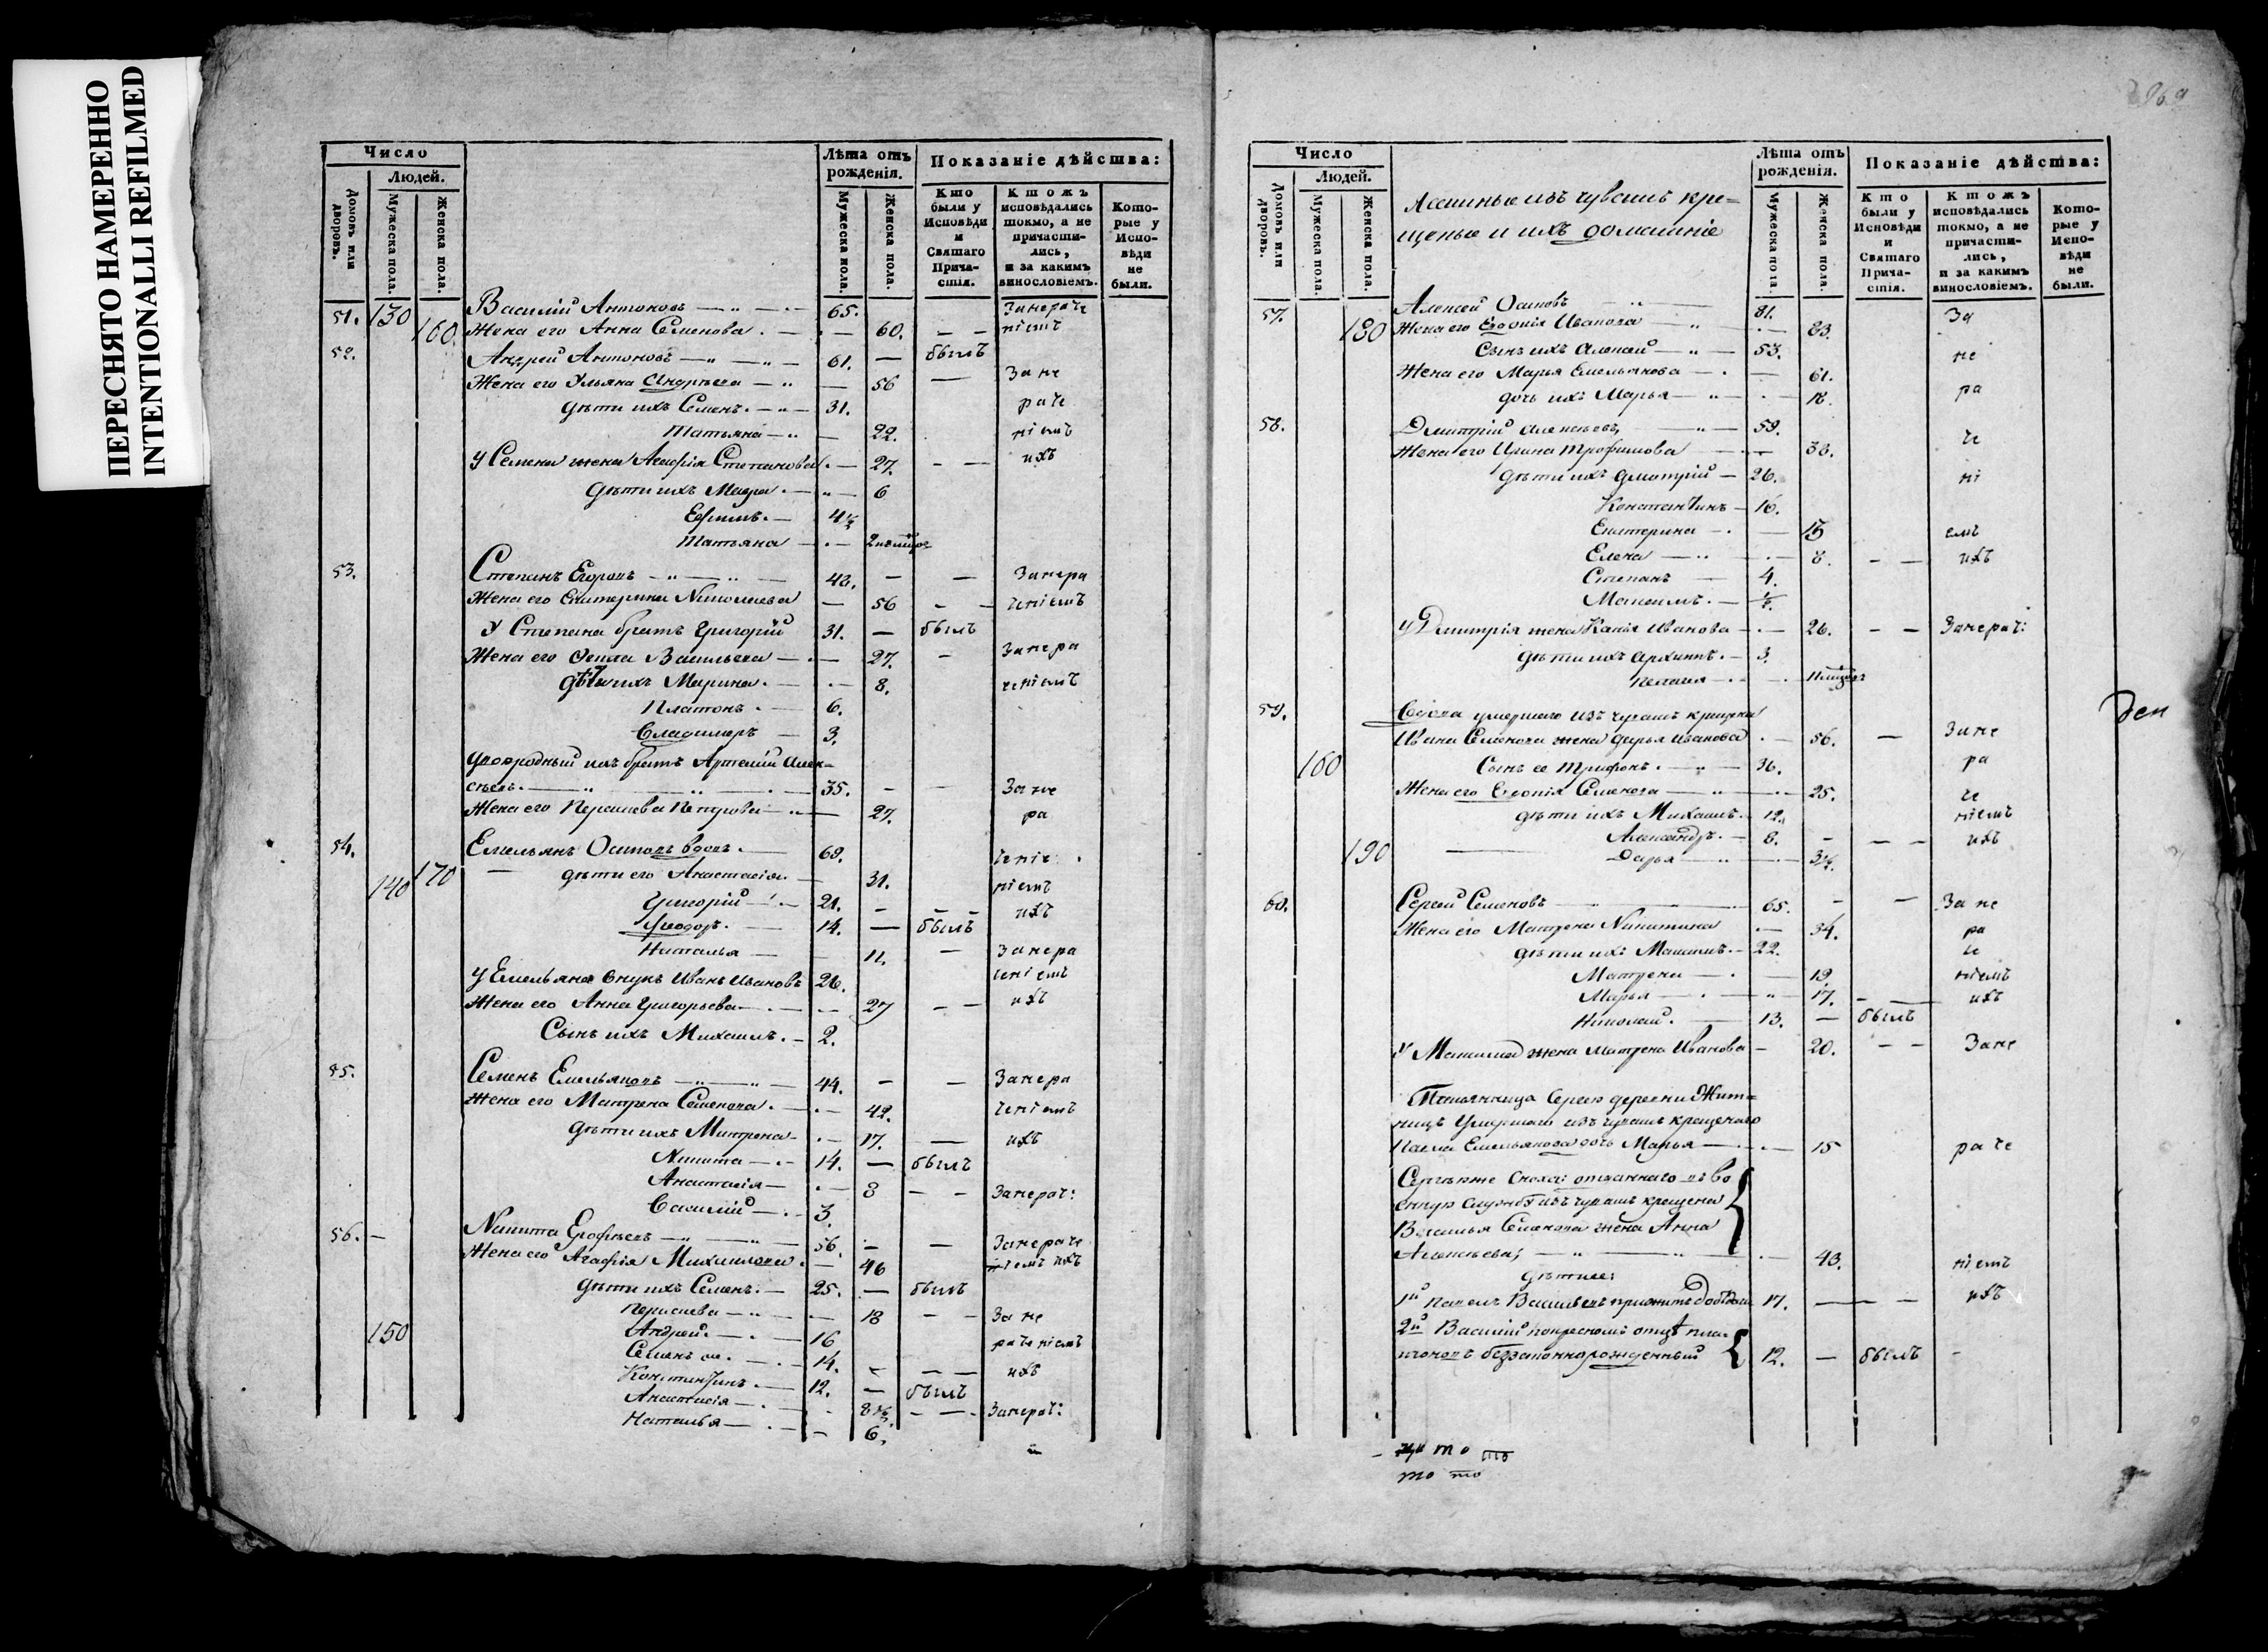 ПЕРЕСНЯТО НАМЕРЕННО
INTENTIONALLI REFILMED
Число
Людей.
Домовъ или дворовъ.
Мужеска пола.
Женска пола.
Лѣта отъ рожденія.
Мужеска пола.
Женска пола.
Показаніе дѣйства:
Кто были у Исповѣди и Святаго Прича-стія.
Ктожъ исповѣдались токмо, а не причасти-лись, и за какимъ винословіемъ.
Кото-рые у Испо-вѣди не были.
51. 130 Василій Антоновъ 65. Занераче
160. Жена его Анна Семенова 60. ніемъ
52. Андрей Антоновъ 61. — былъ
Жена его Ульяна Андрѣева 56 — Зане
дѣти ихъ Семенъ 31. раче
Татьяна 22. ніемъ
У Семена жена Агафія Степанова 27. ихъ
дѣти ихъ Мавра 6
Ефимъ 4½
Татьяна
53. Степанъ Егоровъ 42. Занера
Жена его Екатерина Николаева 56 ченіемъ
У Степана братъ Григорій 31. — былъ
Жена его Васильева 27. Занера
дѣти ихъ Марина 8. ченіемъ
Платонъ 6.
Владимеръ 3.
двоюродный ихъ братъ Артемій Алек-
сѣевъ 35. Зане
Жена его Парасковья Петрова 27. ра
54. Емельянъ Осиповъ вдовъ 68. чніе
140 170 дѣти его Анастасія 31. ніемъ
Григорій 21. ихъ
Ѳеодоръ 14. — былъ
Наталья 11. Занера
У Емельяна внукъ Иванъ Ивановъ 26. ченіемъ
Жена его Анна Григорьева 27 ихъ
Сынъ ихъ Михаилъ 2.
55. Семенъ Емельяновъ 44. Занера
Жена его Матрена Семенова 42. ченіемъ
дѣти ихъ Матрена 17. ихъ
Никита 14. — былъ
Анастасія 8 Занерач:
Василій 3.
56. Никита Ерофѣевъ 56. Занераче
Жена его Агафія Михаилова 46 ніемъ ихъ
дѣти ихъ Семенъ 25. — былъ
18 Зане
150 Андрей 16 раченіемъ
Семенъ 14. ихъ
Константинъ 12. — былъ
Анастасія 8½ Занерач:
Наталья 6.
Число
Людей.
Домовъ или дворовъ.
Мужеска пола.
Женска пола.
Ясашные изъ чувашъ кре=
щеные и ихъ домашніе
Лѣта отъ рожденія.
Мужеска пола.
Женска пола.
Показаніе дѣйства:
Кто были у Исповѣди и Святаго Прича-стія.
Ктожъ исповѣдались токмо, а не причасти-лись, и за какимъ винословіемъ.
Кото-рые у Испо-вѣди не были.
57. Алексей Осиповъ 81. За
180 Жена его Евдокія Иванова 83.
Сынъ ихъ Алексей 53. не
Жена его Марья Емельянова 61.
дочь ихъ Марья 18. ра
58. Дмитрій Алексѣевъ 59. че
Жена его Ирина Трофимова 38.
дѣти ихъ Дмитрій 26. ні
Константинъ 16.
Екатерина 13 емъ
Елена 8. ихъ
Степанъ 4.
Максимъ ½.
У Дмитрія жена Иванова 26. Занерач:
дѣти ихъ Архипъ 3.
Пелагея
59. Вдова умершаго изъ чувашъ крещена
Ивана Семенова жена Дарья Иванова 56. Зане
160 Сынъ ее Трифонъ 36. ра
Жена его Евдокія Семенова 25. че
дѣти ихъ Михаилъ 12. ніемъ
Александръ 8. ихъ
190 Дарья 3½.
60. Сергей Семеновъ 65. Зане
Жена его Матрена Никитина 54. ра
дѣти ихъ Максимъ 22. че
Матрена 19. ніемъ
Марья 17. ихъ
Николай 13. — былъ
У Максима жена Матрена Иванова 20. Зане
деревни Жит=
ницъ Умершаго изъ чувашъ крещенаго
Павла Емельянова дочь Марья 15 раче
Сергѣя же Сноха: отданнаго въ во
енную службу изъ чувашъ крещена
Василья Семенова жена Анна
Алексѣева; 43. ніемъ
дѣти ее:
1й Павелъ Васильевъ 17. ихъ
2й Василій по кресномъ отцѣ Пла-
тоновъ беззаконнорожденный 12. — былъ
то то
то то